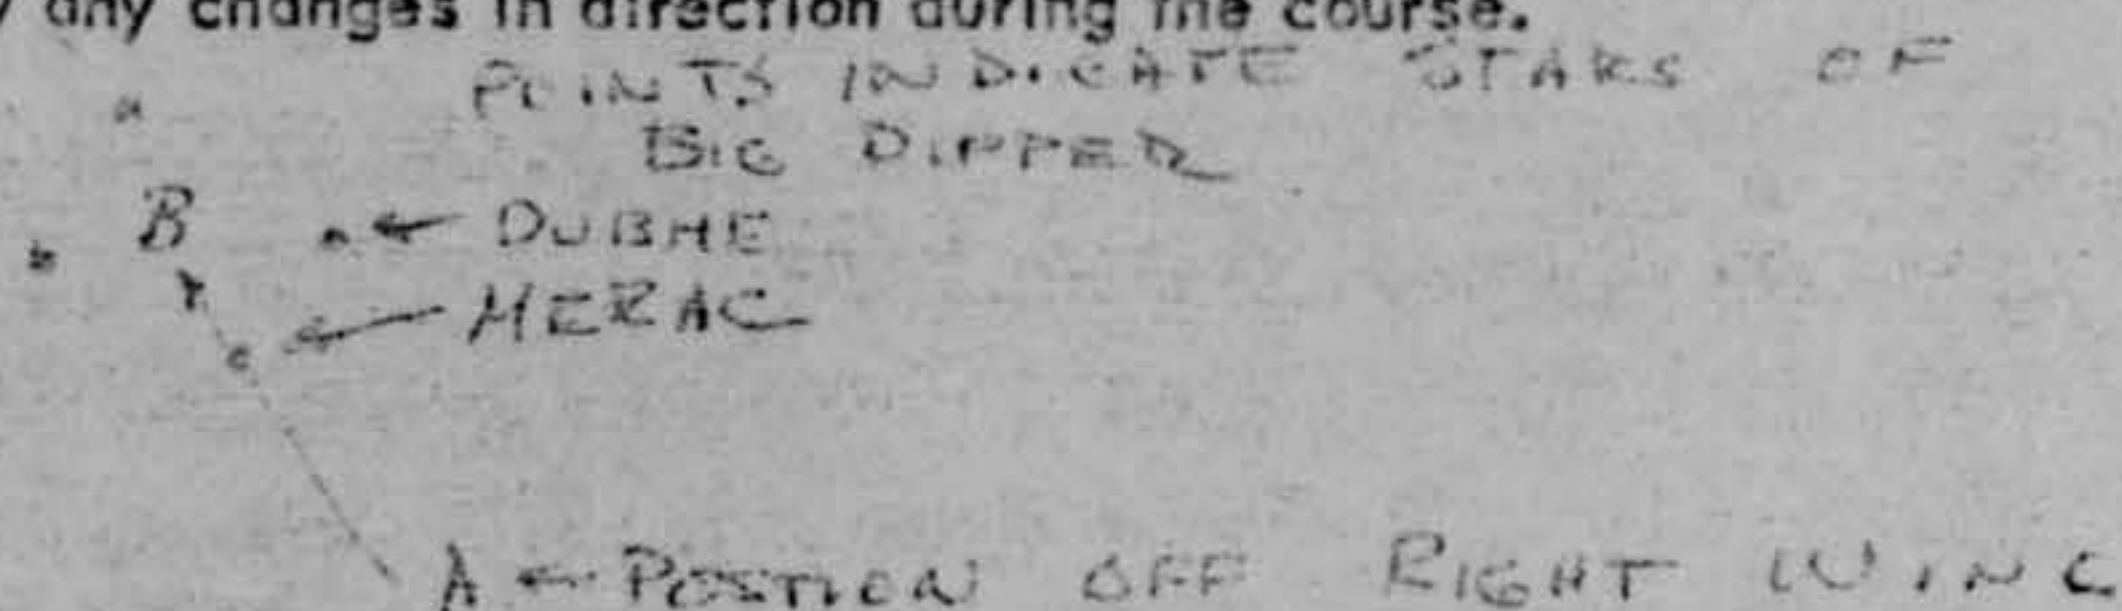 any changes in direction during the course.
POINTS INDICATE STARS OF
BIG DIPPER
B ← DUBHE
← MERAC
A ← POSTION OFF RIGHT WING